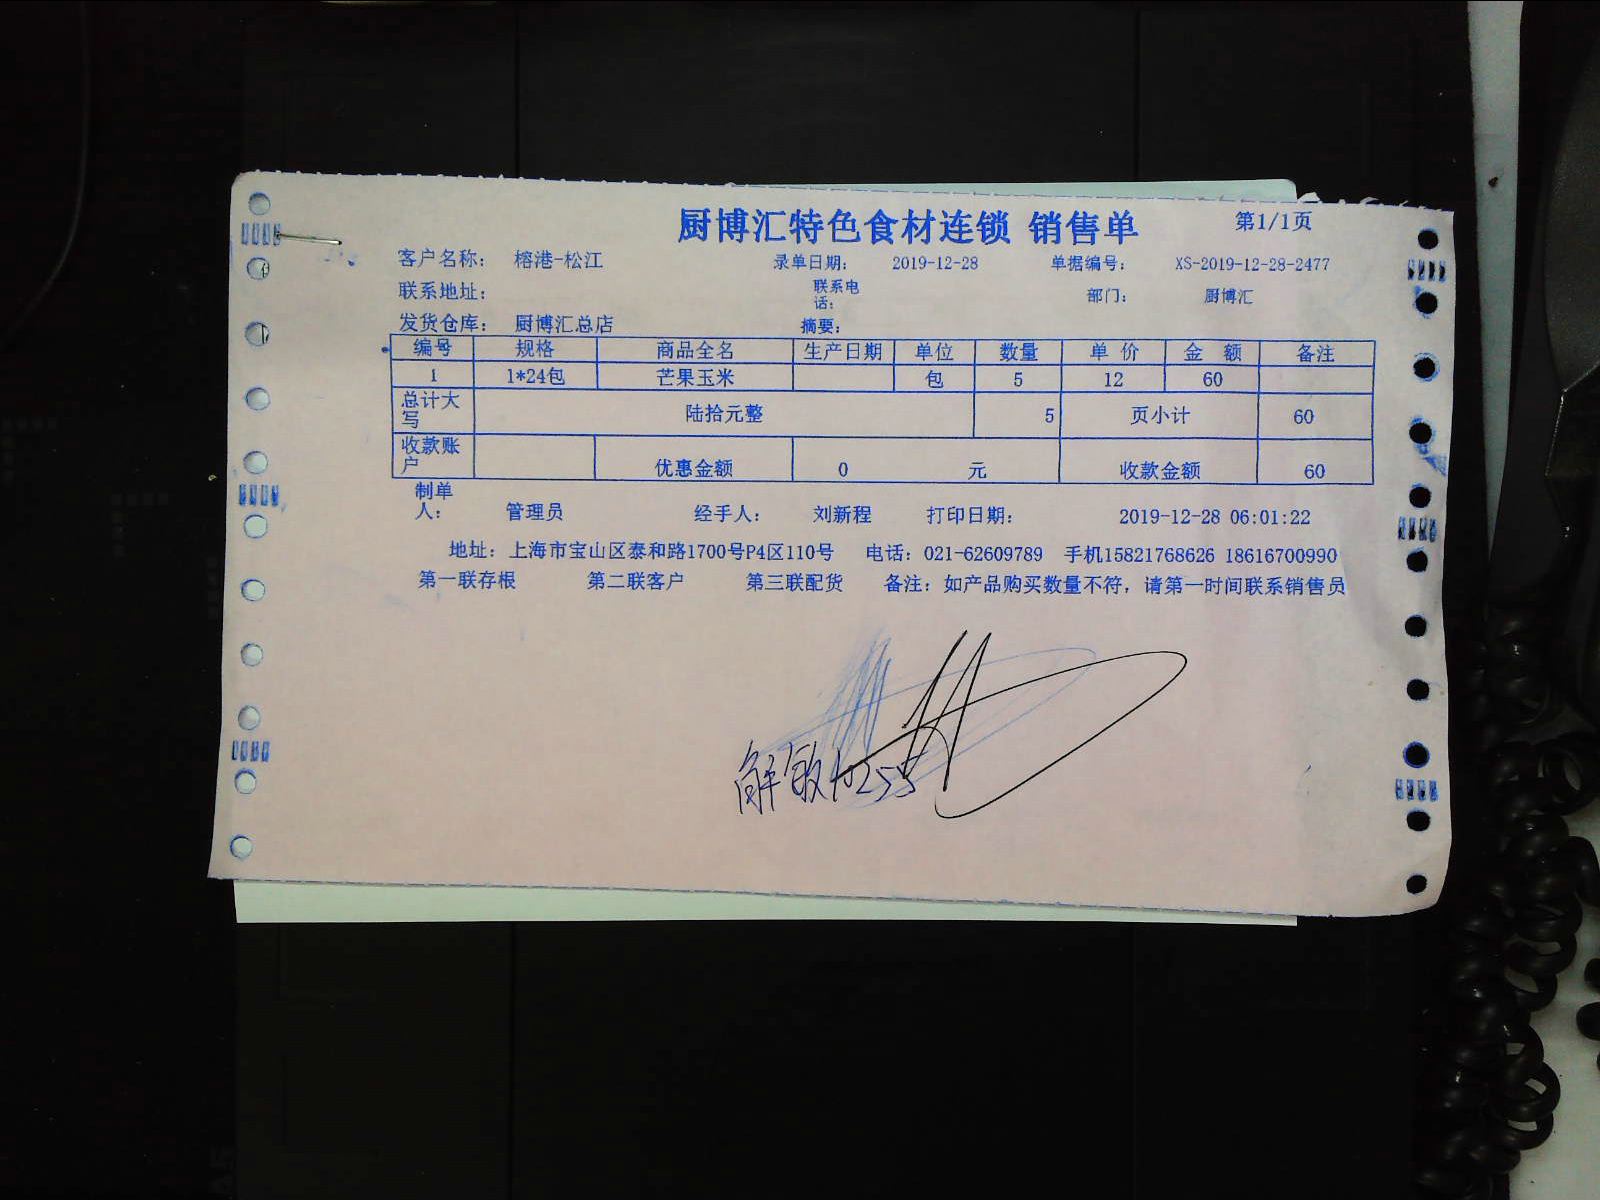 厨博汇特色食材连锁 销售单 第1/1页
客户名称： 榕港-松江 录单日期： 2019-12-28 单据编号： XS-2019-12-28-2477
联系地址： 联系电话： 部门： 厨博汇
发货仓库： 厨博汇总店 摘要：
编号 规格 商品全名 生产日期 单位 数量 单 价 金 额 备注
1 1*24包 芒果玉米 包 5 12 60
总计大写 陆拾元整 5 页小计 60
收款账户 优惠金额 0 元 收款金额 60
制单人： 管理员 经手人： 刘新程 打印日期： 2019-12-28 06:01:22
地址：上海市宝山区泰和路1700号P4区110号 电话：021-62609789 手机15821768626 18616700990
第一联存根 第二联客户 第三联配货 备注：如产品购买数量不符，请第一时间联系销售员
解敏10255